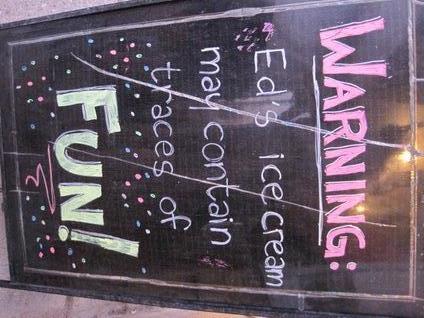 WARNING:
Ed's ice cream
may contain
traces of
FUN!